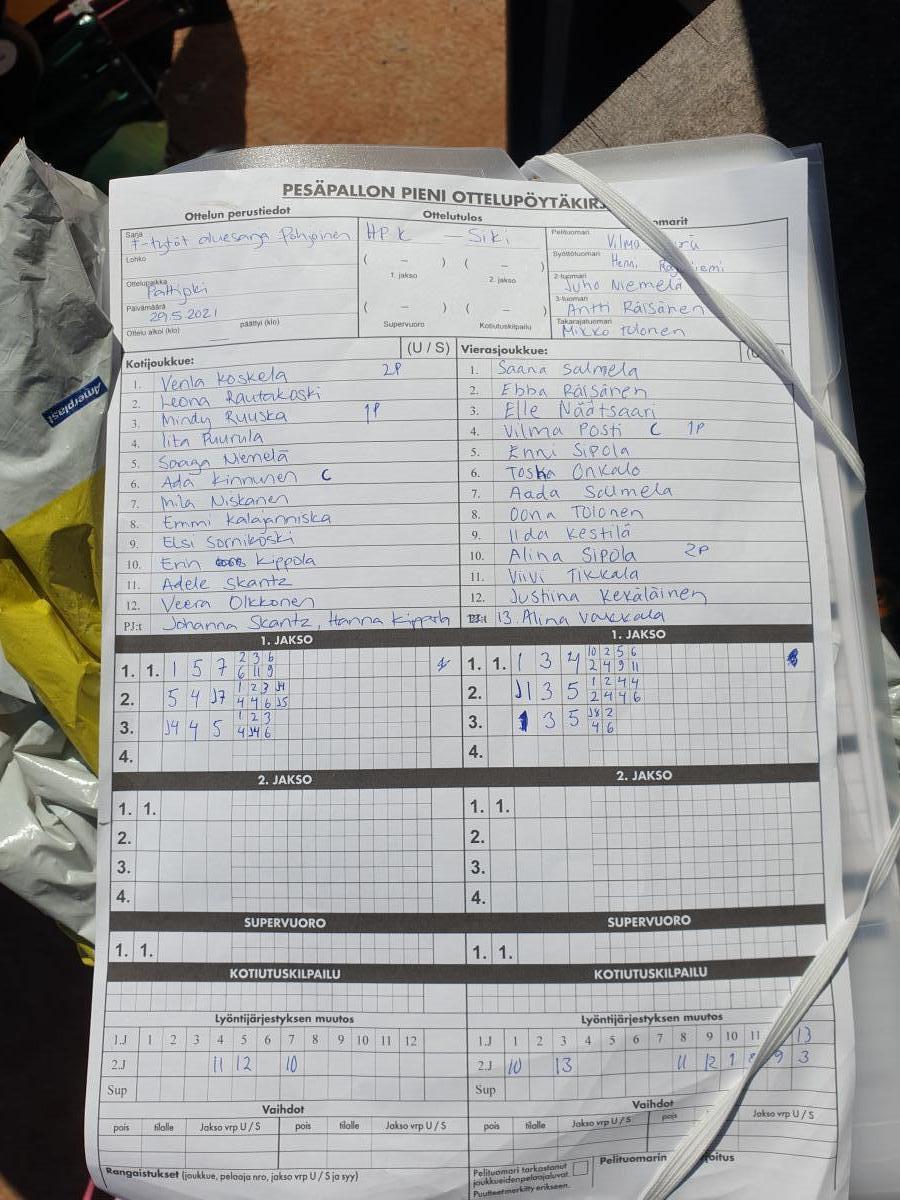 PESÄPALLON PIENI OTTELUPÖYTÄKIR
Ottelun perustiedot
Sarja
F-tytöt aluesarja Pohjoinen
Lohko
Ottelupaikka
Pattijoki
Päivämäärä
29.5.2021
Ottelu alkoi (klo) päättyi (klo)
Ottelutulos
HPK – Siki
( – ) ( – )
1. jakso 2. jakso
( – ) ( – )
Supervuoro Kotiutuskilpailu
omarit
Pelituomari
Vilma
Syöttötuomari
Henri
2-tuomari
Juho Niemelä
3-tuomari
Antti Räisänen
Takarajatuomari
Mikko Tolonen
Kotijoukkue: (U / S)
1. Venla Koskela 2P
2. Leona Rautakoski
3. Mindy Ruuska 1P
4. Iita Puurula
5. Saaga Niemelä
6. Ada Kinnunen C
7. Mila Niskanen
8. Emmi Kalajanniska
9. Elsi Sornikoski
10. Erin Kippola
11. Adele Skantz
12. Veera Olkkonen
PJ:t Johanna Skantz, Hanna Kippola
Vierasjoukkue:
1. Saana Salmela
2. Ebba Räisänen
3. Elle Näätsaari
4. Vilma Posti C 1P
5. Enni Sipola
6. Toska Onkalo
7. Aada Salmela
8. Oona Tolonen
9. Iida Kestilä
10. Alina Sipola 2P
11. Viivi Tikkala
12. Justiina Keräläinen
13. Alina Vakkala
1. JAKSO
1. 1. 1 5 7 2 3 6
6 11 9
2. 5 4 J7 1 2 3 J4
4 4 6 J5
3. J4 4 5 1 2 3
4 J4 6
4.
1. JAKSO
1. 1. 1 3 4 10 2 5 6
2 4 9 11
2. J1 3 5 1 2 4 4
2 4 4 6
3. 1 3 5 J8 2
4 6
4.
2. JAKSO
1. 1.
2.
3.
4.
2. JAKSO
1. 1.
2.
3.
4.
SUPERVUORO
1. 1.
SUPERVUORO
1. 1.
KOTIUTUSKILPAILU
KOTIUTUSKILPAILU
Lyöntijärjestyksen muutos
1.J 1 2 3 4 5 6 7 8 9 10 11 12
2.J 11 12 10
Sup
Vaihdot
pois tilalle Jakso vrp U / S pois tilalle Jakso vrp U / S
Rangaistukset (joukkue, pelaaja nro, jakso vrp U / S ja syy)
Lyöntijärjestyksen muutos
1.J 1 2 3 4 5 6 7 8 9 10 11 13
2.J 10 13 11 12 1 8 9 3
Sup
Vaihdot
pois tilalle Jakso vrp U / S pois Jakso vrp U / S
Pelituomari tarkastanut
joukkueidenpelaajaluvat.
Puutteet merkitty erikseen.
Pelituomarin oitus
Amerplast